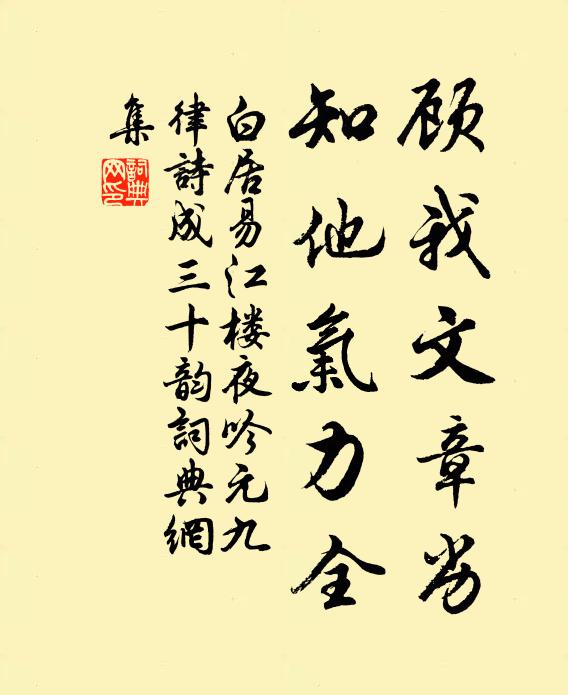 顾我文章劣
知他氣力全
白居易江楼夜吟元九
律詩成三十韵詞典網
集
詞典
网印